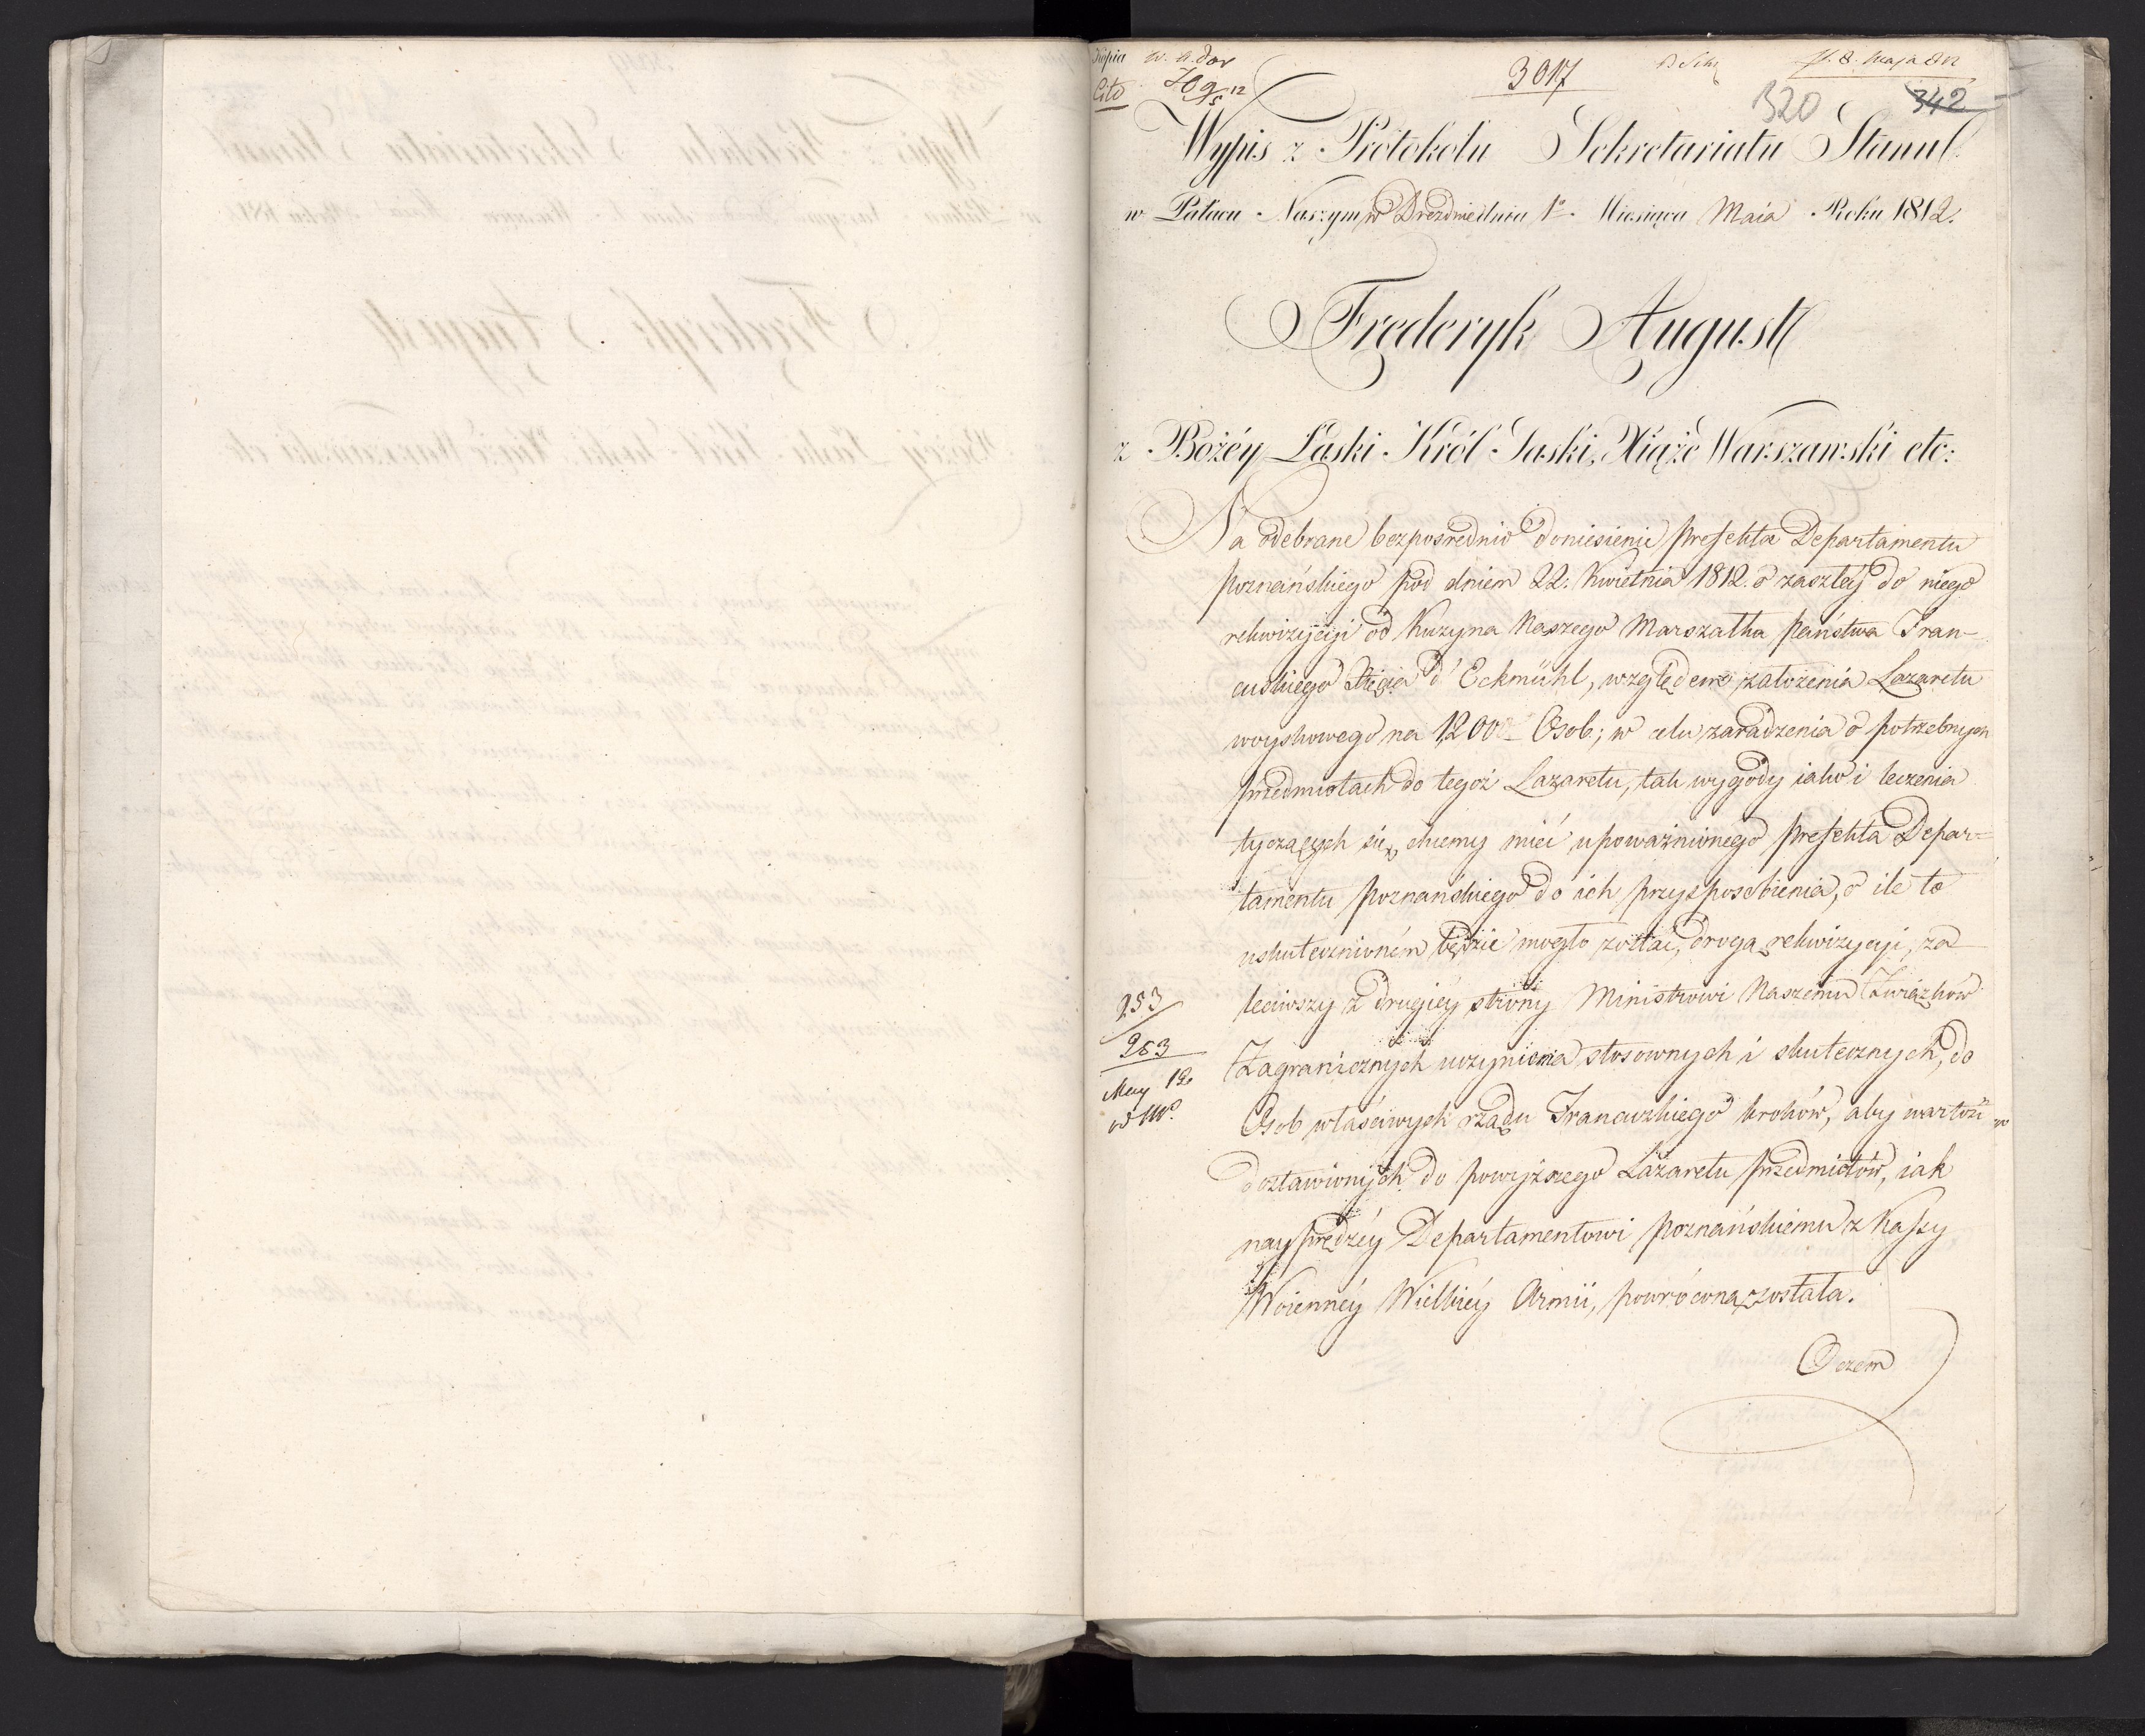 Kopia
Cito
3017
pr. 8. Maja 812
320 342
Wypis z Protokołu Sekretariatu Stanu
w Pałacu Naszym w Dreznie dnia 1o. Miesiąca Maia Roku 1812.
Fryderyk August
z Bożéy Łaski Król Saski, Xiąże Warszawski etc:
Na odebrane bezpośrednio doniesienie Prefekta Departamentu
Poznańskiego pod dniem 22. Kwietnia 1812. o zaszłey do niego
rekwizycyi od Kuzyna Naszego Marszałka Państwa Fran-
cuskiego Xięcia d'Eckmühl, względem założenia Lazaretu
woyskowego na 1,200 Osob; w celu zaradzenia o potrzebnych
przedmiotach do tegoż Lazaretu, tak wygody iako i leczenia
tyczących się, chcemy mieć upoważnionego Prefekta Depar-
tamentu Poznańskiego do ich przysposobienia, o ile to
uskutecznioném będzie mogło zostać, drogą rekwizycyi, za
leciwszy z drugiéy strony Ministrowi Naszemu Związków
Zagranicznych uczynienia stosownych i skutecznych, do
Osob właściwych rządu Francuzkiego kroków, aby wartość
dostawionych do powyższego Lazaretu przedmiotów, iak
nayprędzéy Departamentowi Poznańskiemu z Kassy
Woiennéy Wielkiéy Armii, powróconą została.
O czem
253
253
May 12